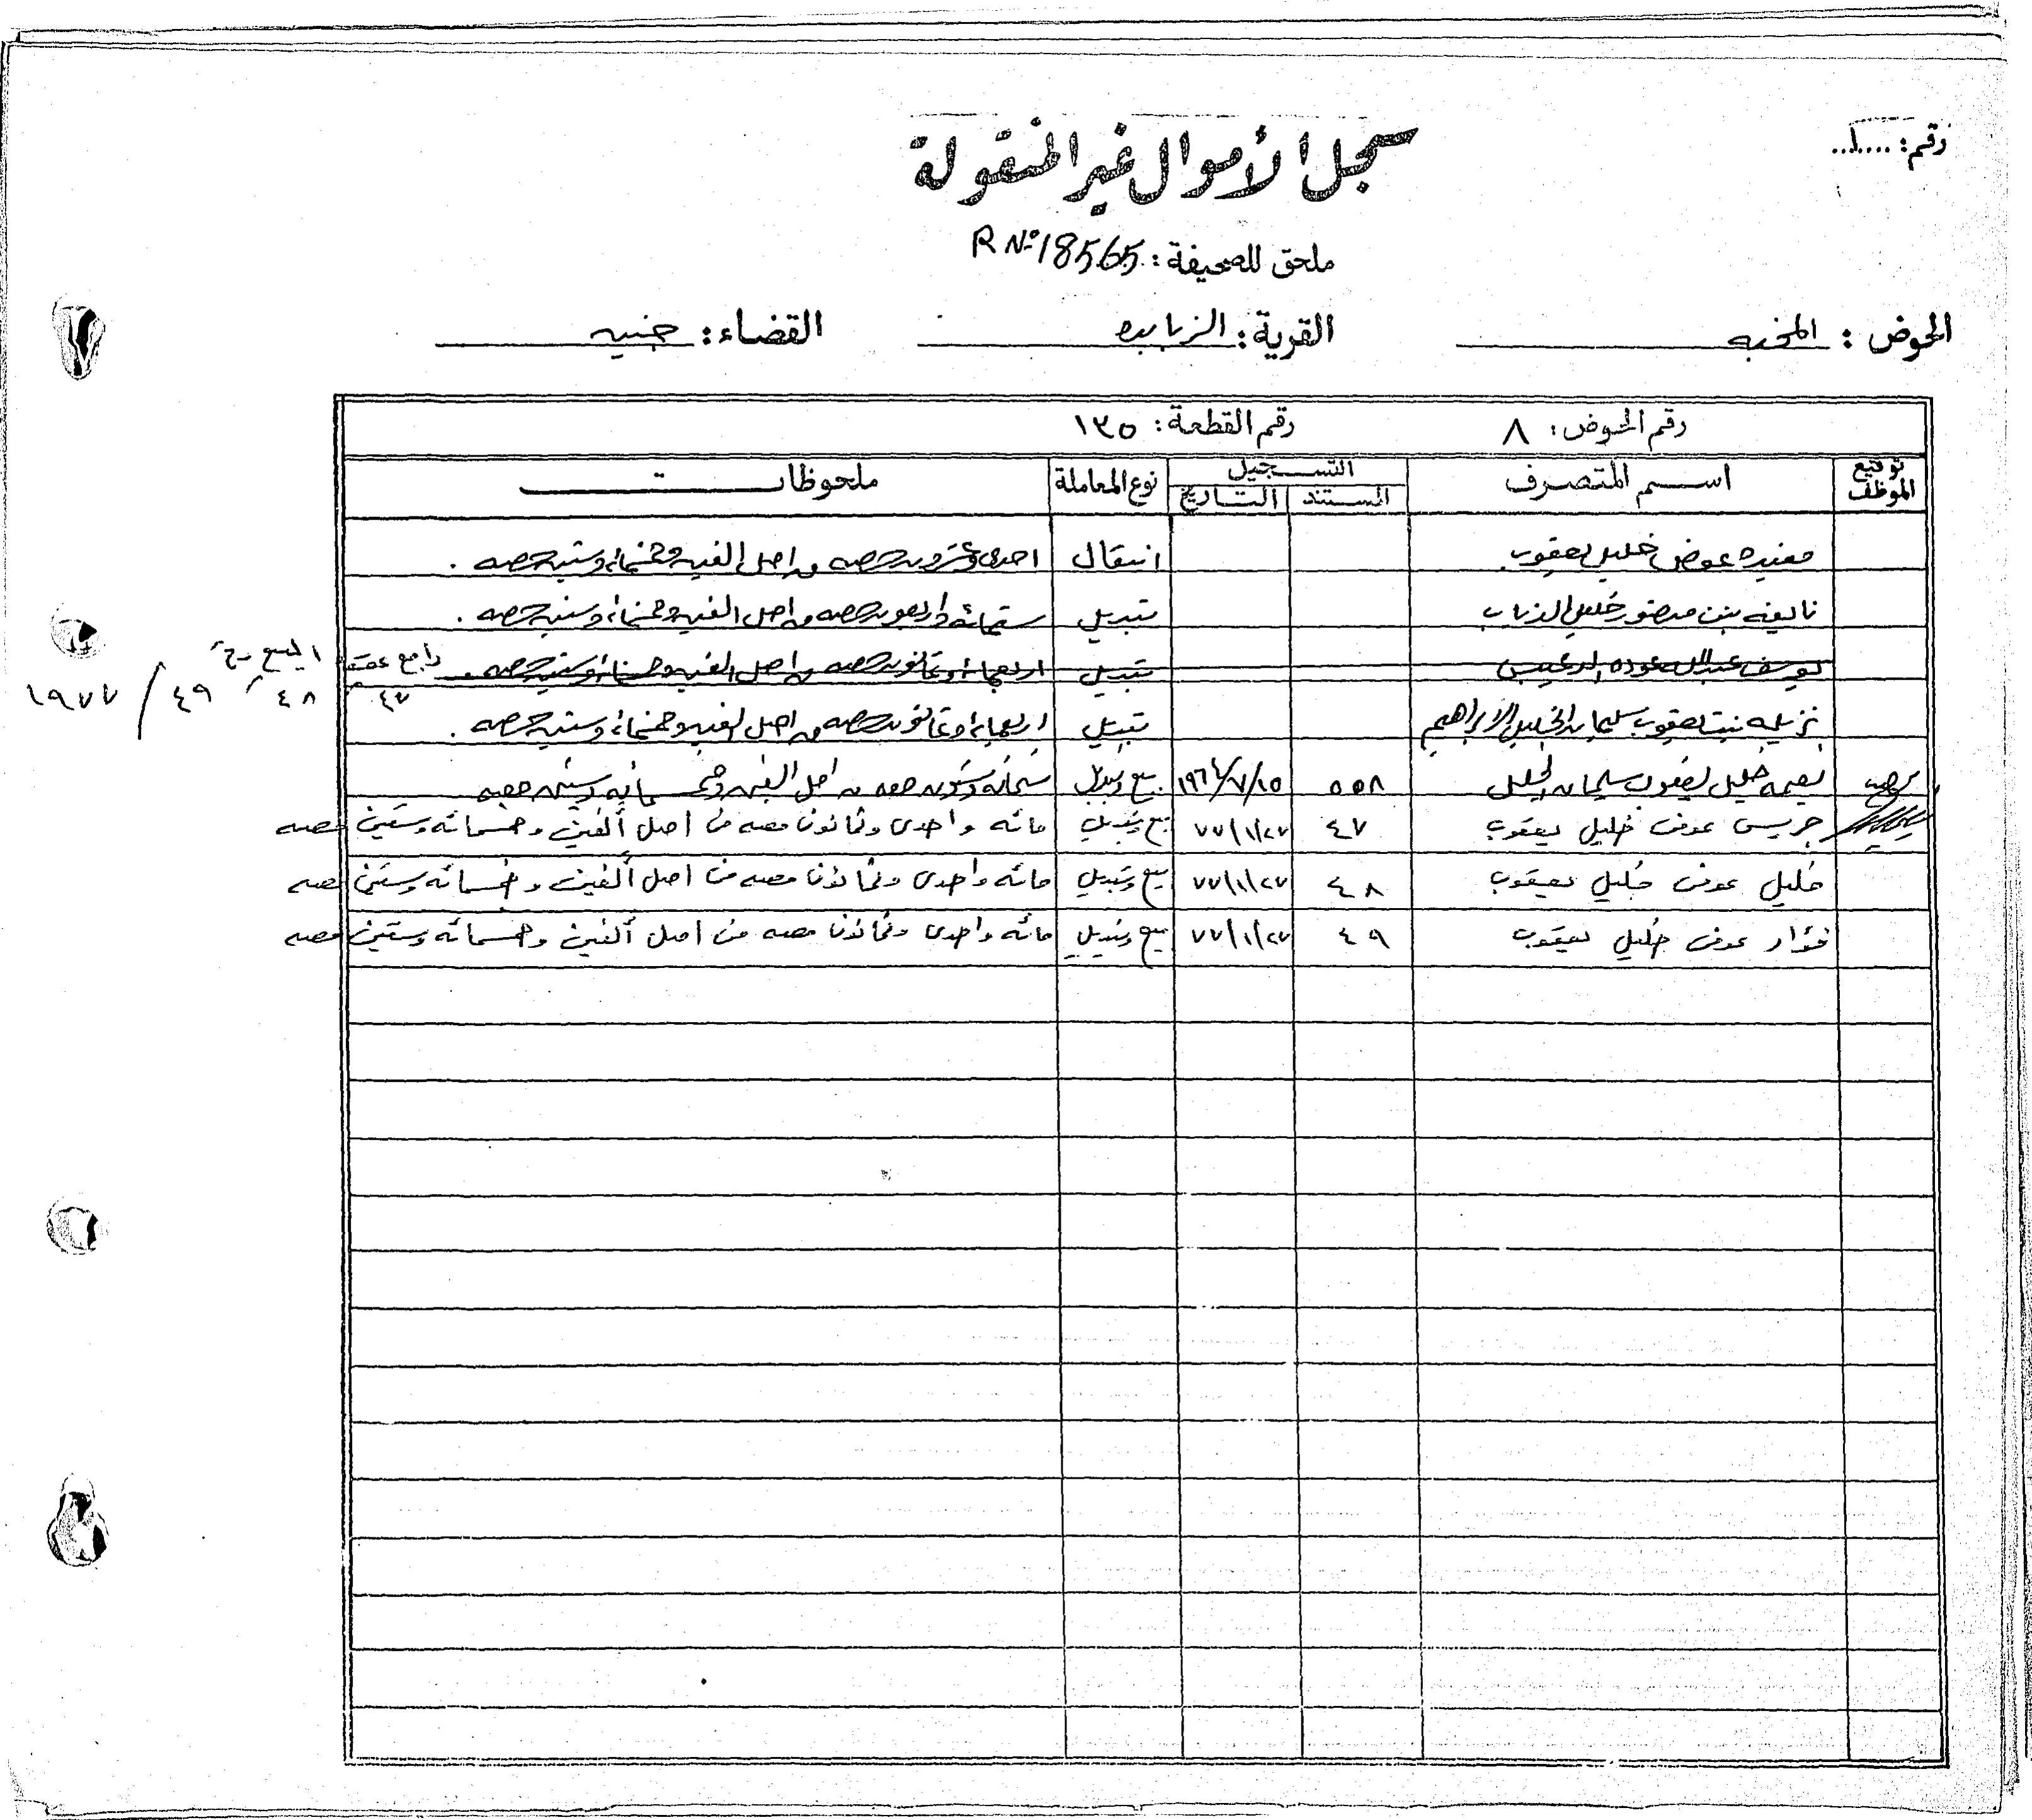 رقم: ...١....
سجل الأموال غير المنقولة
ملحق للصحيفة: R No 18565
الحوض: المخبه القرية: الزبابده القضاء: جنين
رقم الحوض: ٨ رقم القطعة: ١٣٥
توقيع الموظف اسم المتصرف التسجيل نوع المعاملة ملحوظات
المستند التاريخ
مفيده عوض خليل يعقوب انتقال احدى وعشرون حصه من اصل الفين وخمسمائة وستين حصه .
نايفه بنت منصور خليل الدياب تبديل ستمائة واربعون حصه من اصل الفين وخمسمائة وستين حصه .
يوسف عبدالله عوده تبديل اربعمائة وثمانون حصه من اصل الفين وخمسمائة وستين حصه . راجع عقد البيع
٤٧ ٤٨ ٤٩ / ١٩٧٧
نزيله بنت يعقوب سليمان الخليل الابراهيم تبديل اربعمائة وثمانون حصه من اصل الفين وخمسمائة وستين حصه .
نعيمه خليل يعقوب سليمان الخليل ٥٥٨ ١٩٦٤/٧/١٥ بيع وتبديل ستمائه وستون حصه من اصل الفين وخمسمائه وستين حصه
جريس عوض خليل يعقوب ٤٧ ٧٧/١/٢٧ بيع وتبديل مائه واحدى وثمانون حصه من اصل ألفين وخمسمائه وستين حصه
خليل عوض خليل يعقوب ٤٨ ٧٧/١/٢٧ بيع وتبديل مائه واحدى وثمانون حصه من اصل ألفين وخمسمائه وستين حصه
فؤاد عوض خليل يعقوب ٤٩ ٧٧/١/٢٧ بيع وتبديل مائه واحدى وثمانون حصه من اصل ألفين وخمسمائه وستين حصه